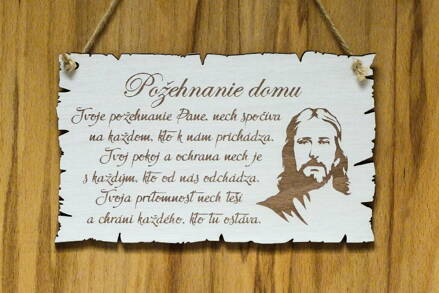 Požehnanie domu
Tvoje požehnanie Pane, nech spočíva
na každom, kto k nám prichádza.
Tvoj pokoj a ochrana nech je
s každým, kto od nás odchádza.
Tvoja prítomnosť nech teší
a chráni každého, kto tu ostáva.